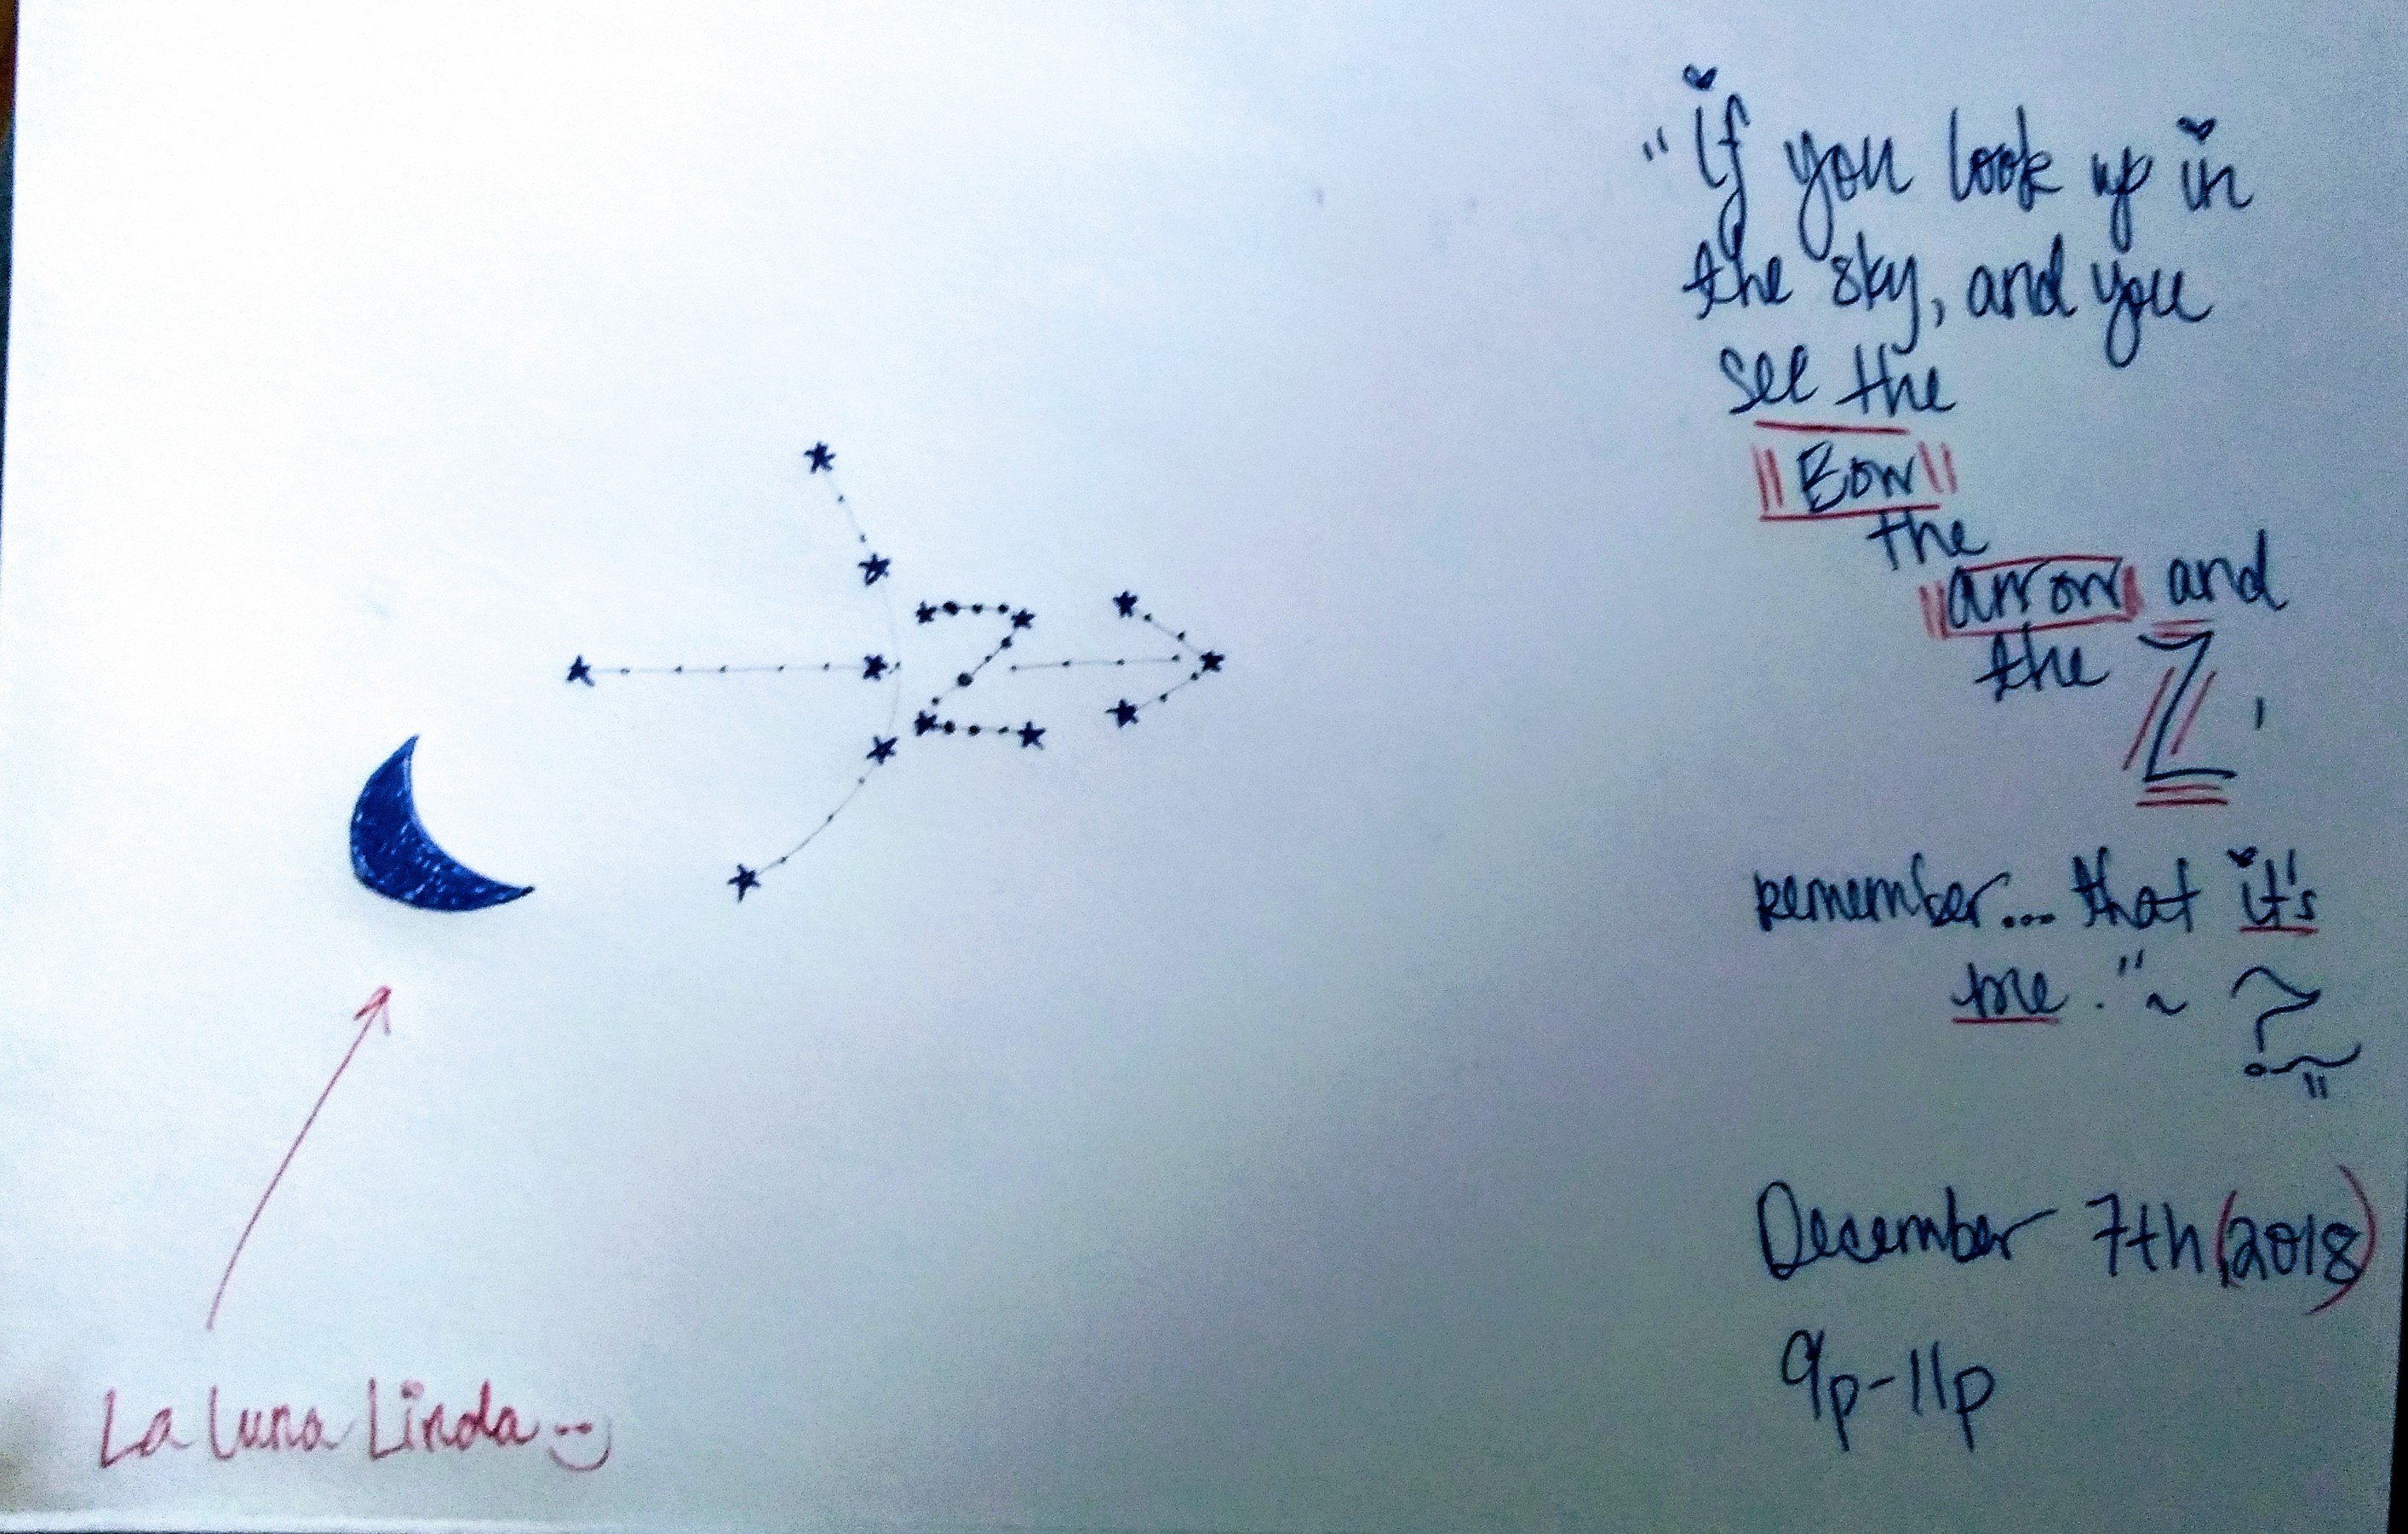 "If you look up in
the sky, and you
see the
"Bow"
the
"arrow" and
the Z,
remember... that it's
me." ~ ?
December 7th, (2018)
9p-11p
La Luna Linda